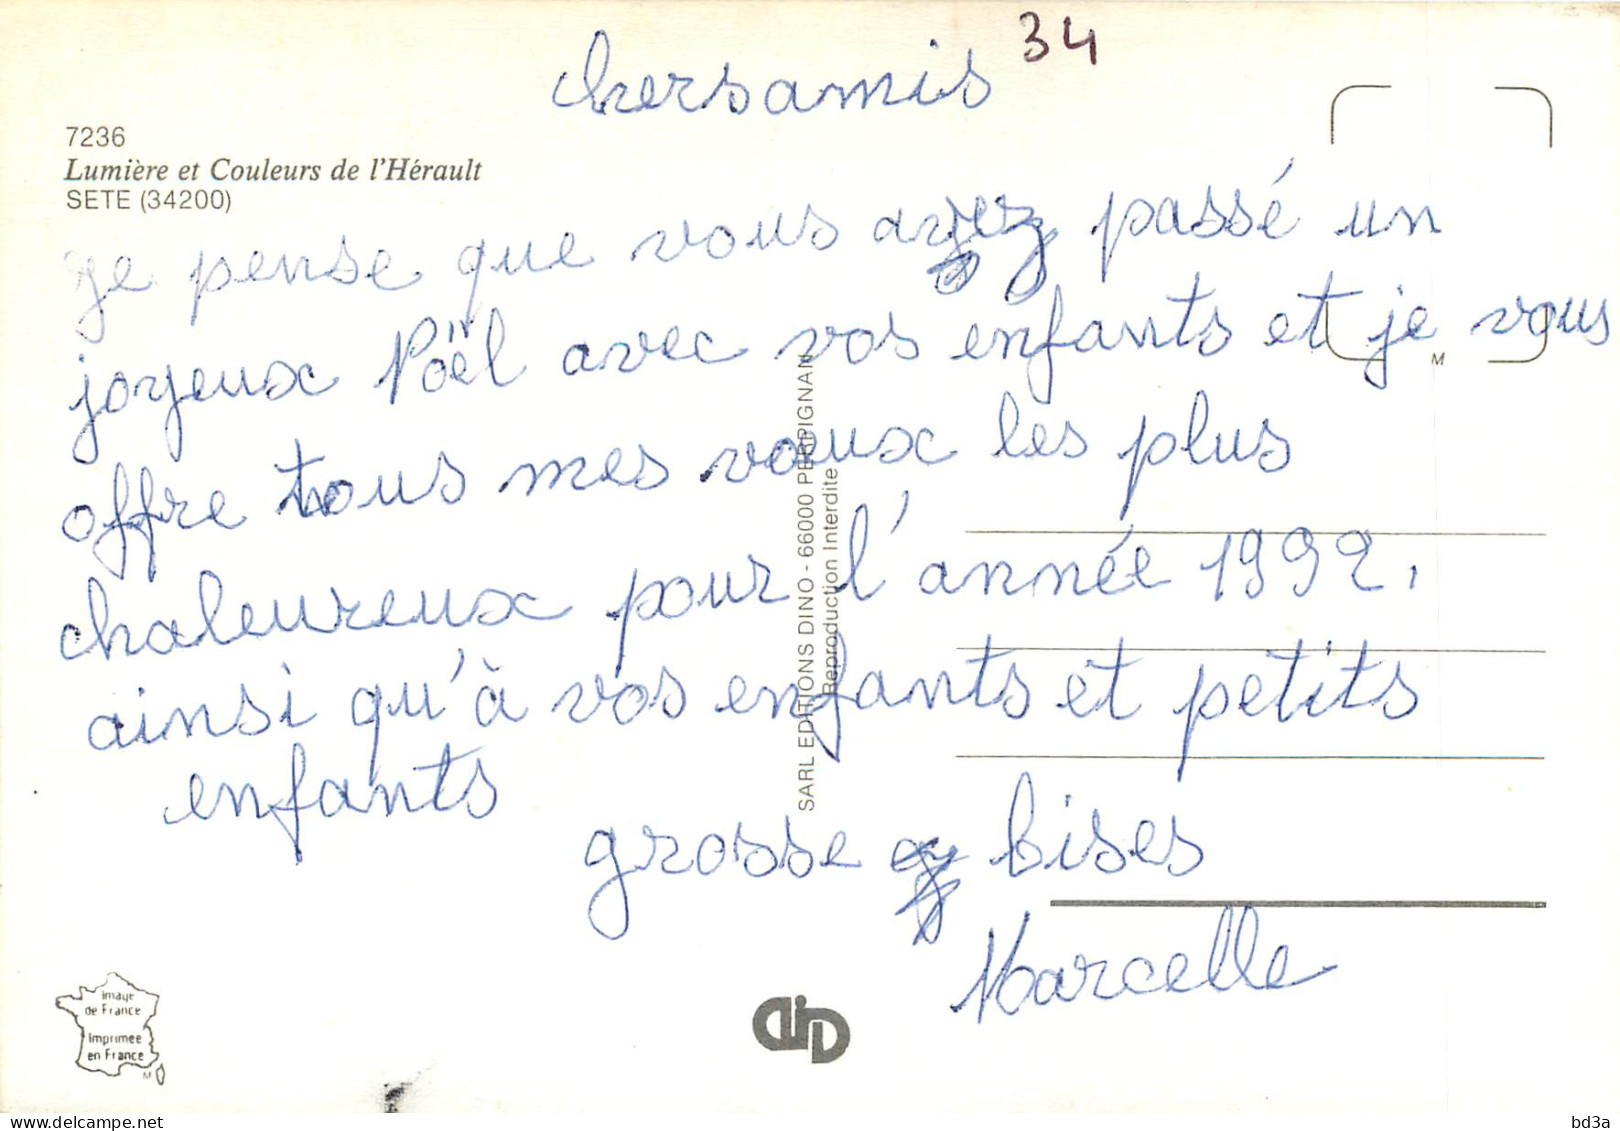 34
chers amis
7236
Lumière et Couleurs de l'Hérault
SETE (34200)
je pense que vous avez passé un
joyeux Nöel avec vos enfants et je vous
offre tous mes voeux les plus
chaleureux pour l'année 1992.
ainsi qu'à vos enfants et petits
enfants
grosse bises
Marcelle
SARL EDITIONS DINO - 66000 PERPIGNAN
Reproduction Interdite
M
Image
de France
Imprimée
en France
M
delcampe.net
bd3a